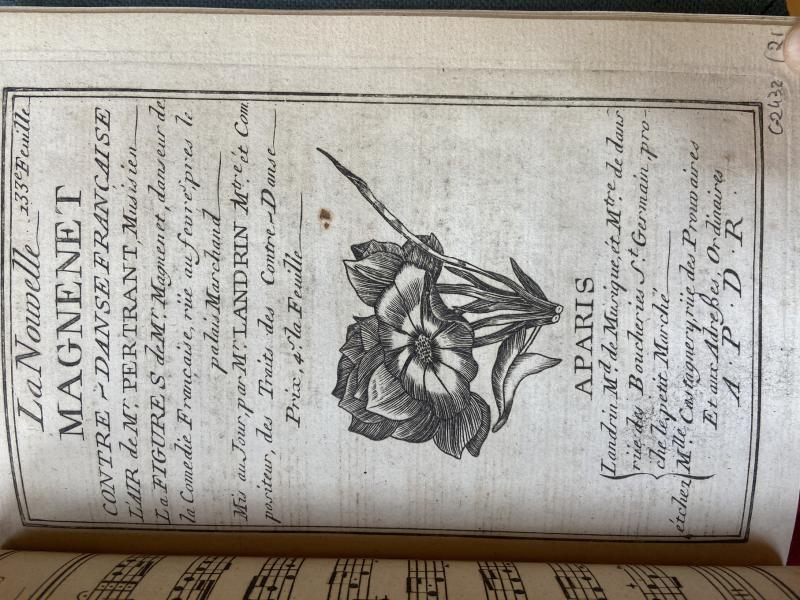 La Nouvelle 133e Feuille
MAGNENET
CONTRE-DANSE FRANCAISE
L'AIR de Mr. PERTRANT, Musisien
La FIGURES de Mr. Magnenet, danseur de
la Comedie Francaise, rüe au fevre, pres le
palais Marchand
Mis au Jour, par Mr. LANDRIN Mtre et Com
positeur, des Traits des Contre-Danse
Prix, 4s. la Feuille
APARIS
Landrin Md. de Musique, et Mtre de dans
rüe des Boucheries St. Germain, pro-
che le petit Marché
et chez Mlle Castagnery, rüe des Prouvaires
Et aux Adresses Ordinaires
A. P. D. R.
C-2432 (21